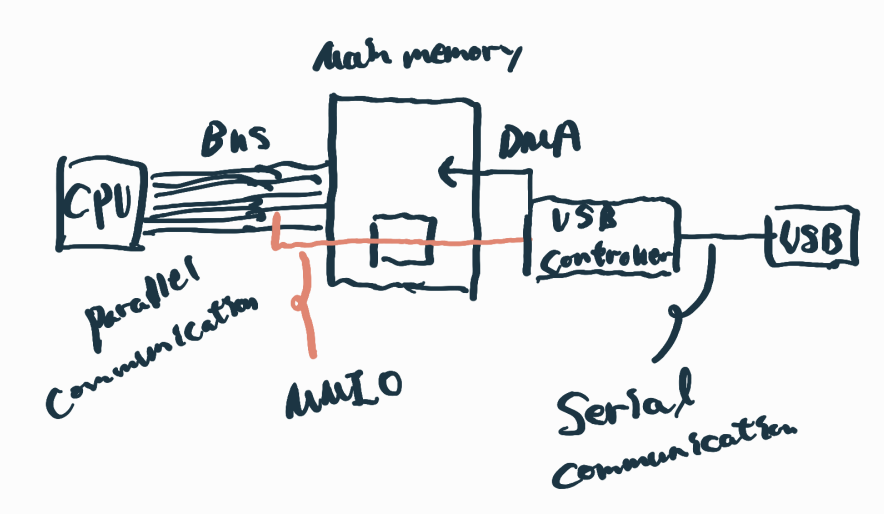 Main memory
Bus
DMA
CPU
USB
Controller
USB
Parallel
Communication
MMIO
Serial
Communication